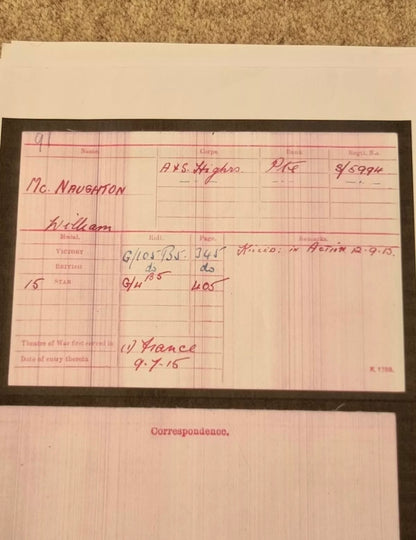 91
Name. Corps. Rank Regtl. No.
A & S. Highrs. Pte S/5994
Mc. NAUGHTON
William
Medal. Roll. Page. Remarks.
VICTORY G/105 B5. 345 Killed in Action 12-9-15.
BRITISH do do
15 STAR G/4 B5 405
Theatre of War first served in (1) France
Date of entry therein 9-7-15
K. 1380.
Correspondence.